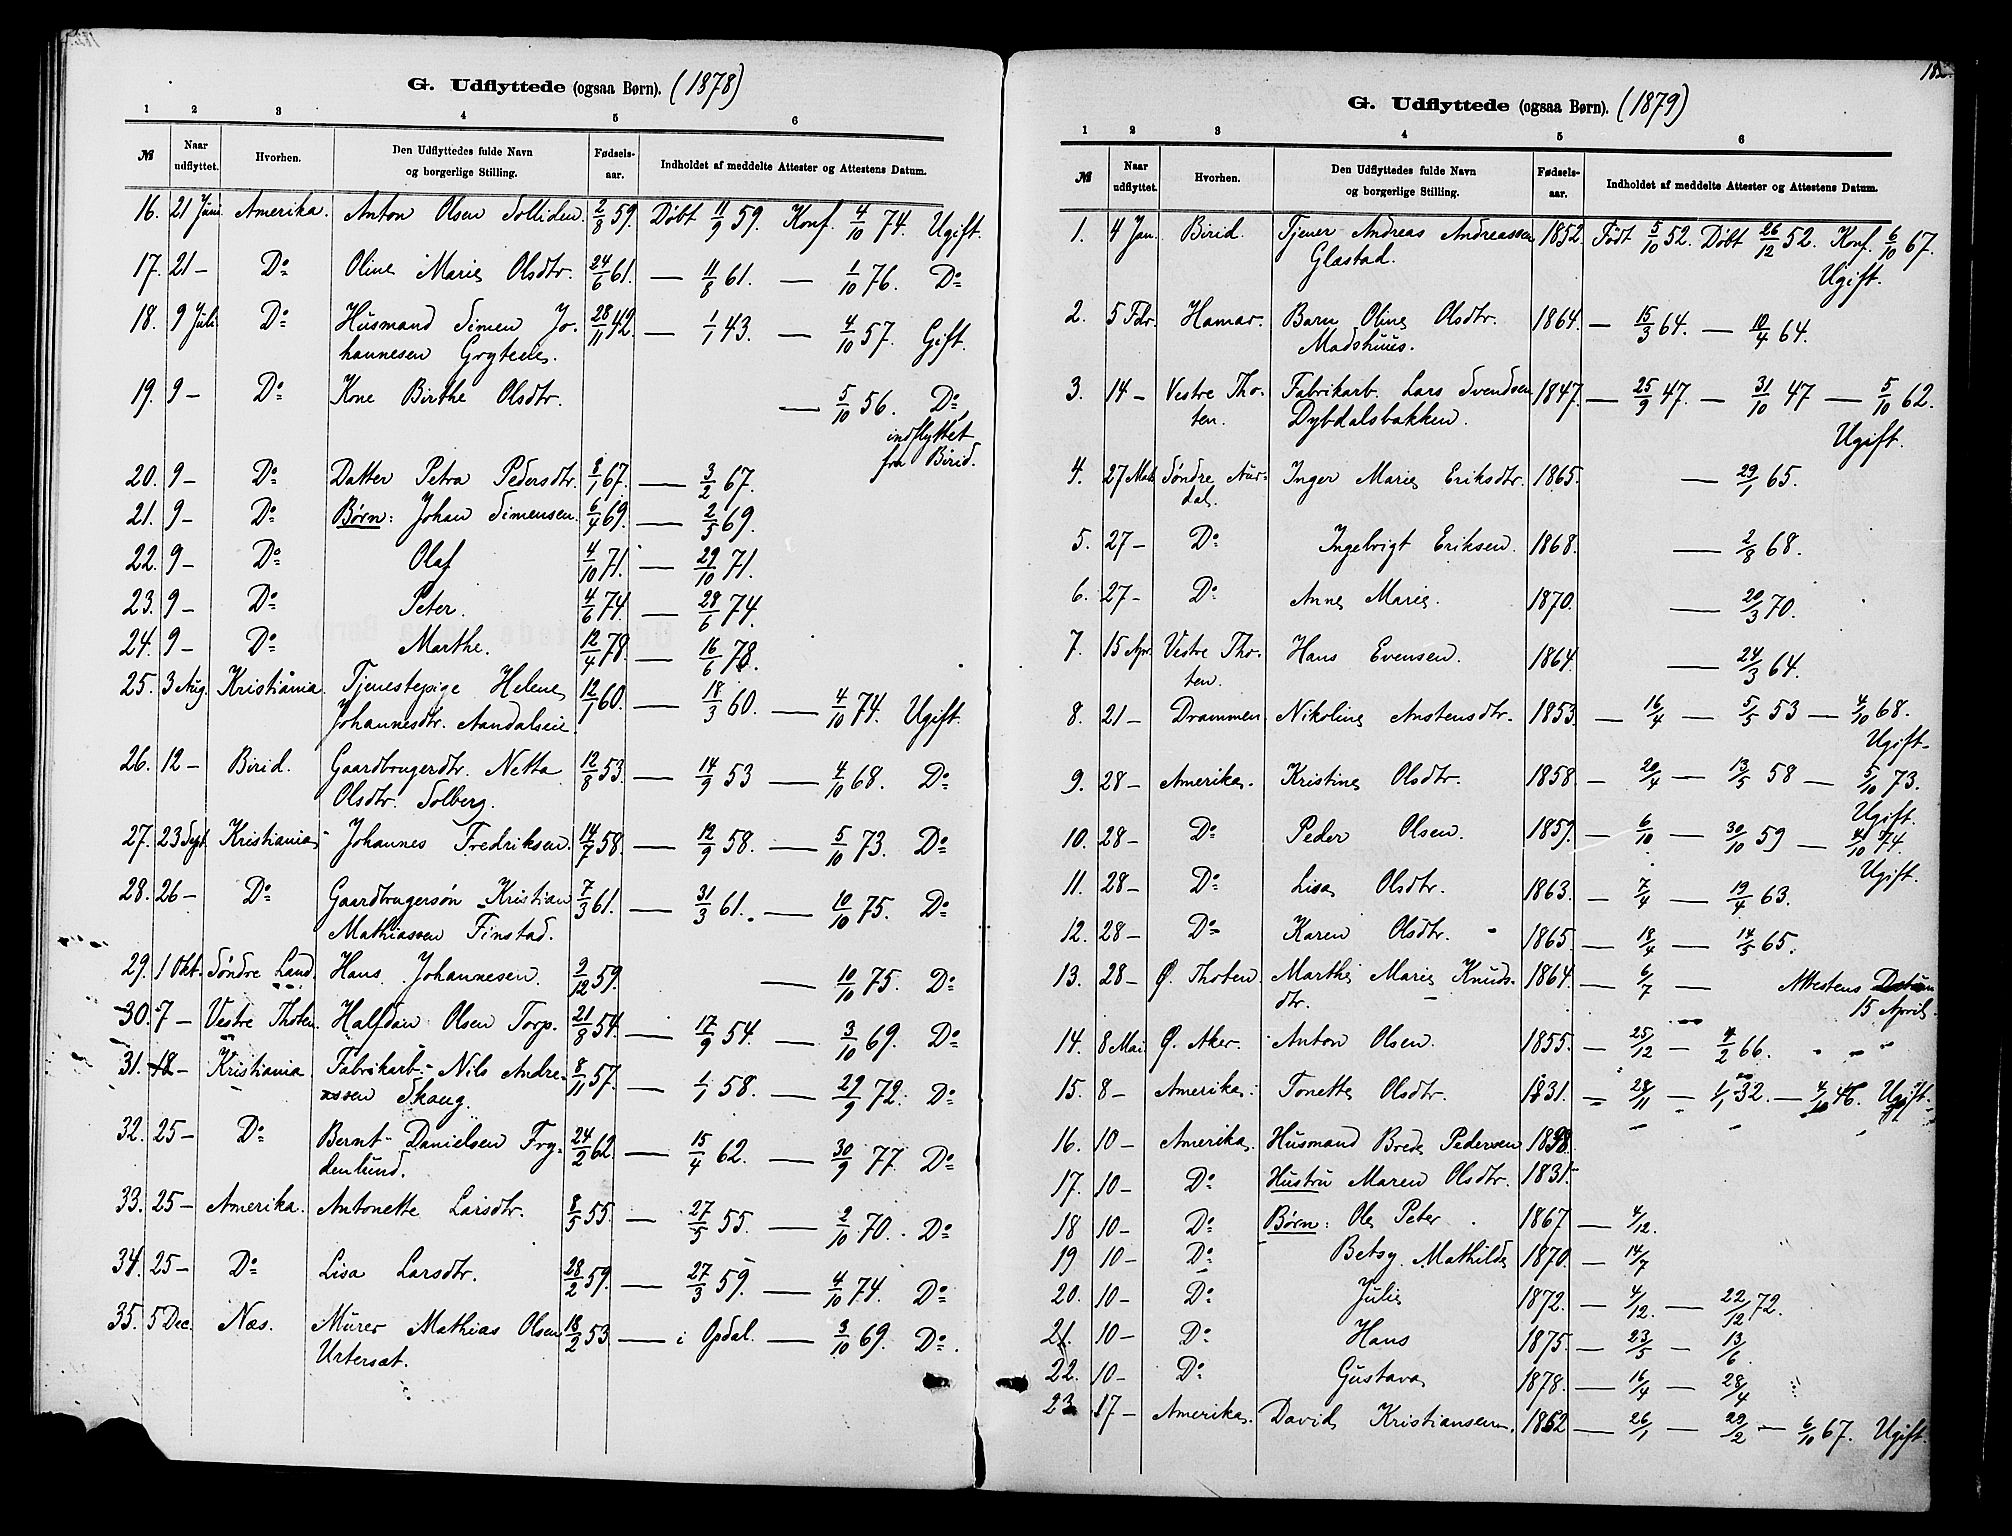 G. Udflyttede (ogsaa Børn). (1878)
1 2 3 4 5 6
№ Naar udflyttet. Hvorhen. Den Udflyttedes fulde Navn og borgerlige Stilling. Fødsels-aar. Indholdet af meddelte Attester og Attestens Datum.
16. 21 Juni Amerika. Anton Olsen Solliden. 2/8 59. Døbt 11/9 59. Konf. 4/10 74. Ugift.
17. 21 — Do Oline Marie Olsdtr. 24/6 61. — 11/8 61. — 1/10 76. Do
18. 9 Juli Do Husmand Simen Jo- 28/11 42. — 1/1 43. — 4/10 57. Gift.
hannesen Grytene.
19. 9 — Do Kone Birthe Olsdtr. — 5/10 56. Do
indflyttet
fra Birid.
20. 9 — Do Datter Petra Pedersdtr. 8/1 67. — 3/2 67.
21. 9 — Do Børn: Johan Simensen. 6/4 69. — 2/5 69.
22. 9 — Do Olaf 4/10 71. — 29/10 71.
23. 9 — Do Peter. 4/6 74. — 28/6 74.
24. 9 — Do Marthe. 12/4 78. — 16/6 78.
25. 3 Aug. Kristiania. Tjenestepige Helene 12/1 60. — 18/3 60. — 4/10 74. Ugift.
Johannesdtr. Aandalseie.
26. 12 — Birid. Gaardbrugerdtr. Netta 12/8 53. — 14/9 53 — 4/10 68. Do
Olsdtr. Solberg.
27. 23 Sept. Kristiania Johannes Fredriksen. 14/7 58. — 12/9 58. — 5/10 73. Do
28. 26 — Do Gaardbrugersøn Kristian 7/3 61. — 31/3 61. — 10/10 75. Do
Mathiassen Finstad.
29. 1 Okt. Søndre Land. Hans Johannesen. 9/12 59. — 10/10 75. Do
30. 7 — Vestre Thoten. Halfdan Olsen Torp. 21/8 54. — 17/9 54. — 3/10 69. Do
31. 18 — Kristiania Fabrikarb. Nils Andre- 8/11 57. — 1/1 58. — 29/9 72. Do
assen Skaug.
32. 25 — Do Bernt Danielsen Fry- 24/2 62. — 15/4 62. — 30/9 77. Do
denlund.
33. 25 — Amerika. Antonette Larsdtr. 8/5 55. — 27/5 55. — 2/10 70. Do
34. 25 — Do Lisa Larsdtr. 28/2 59. — 27/3 59. — 4/10 74. Do
35. 5 Dec. Næs. Murer Mathias Olsen 18/2 53 — i Opdal. — 3/10 69. Do.
Urtersæt.
G. Udflyttede (ogsaa Børn). (1879)
1 2 3 4 5 6
№ Naar udflyttet. Hvorhen. Den Udflyttedes fulde Navn og borgerlige Stilling. Fødsels-aar. Indholdet af meddelte Attester og Attestens Datum.
1. 4 Jan. Birid. Tjener Andreas Andreassen 1852 Født 5/10 52. Døbt 26/12 52. Konf. 6/10 67.
Glæstad. Ugift.
2. 5 Febr. Hamar. Barn Oline Olsdtr. 1864. — 15/3 64. — 10/4 64.
Madshuus.
3. 14 — Vestre Tho- Fabrikarb. Lars Svendsen 1847. — 25/9 47. — 31/10 47 — 5/10 62.
ten. Dybdalsbakken. Ugift.
4. 27 Søndre Aur- Inger Marie Eriksdtr. 1865. — 29/1 65.
dal.
5. 27 — Do Ingebrigt Eriksen. 1868. — 2/8 68.
6. 27 — Do Anne Marie. 1870. — 20/3 70.
7. 15 Apr. Vestre Tho- Hans Evensen. 1864. — 24/3 64.
ten.
8. 21 — Drammen. Nikoline Anstensdtr. 1853. — 16/4 — 5/5 53 — 4/10 68.
Ugift.
9. 28 — Amerika. Kristine Olsdtr. 1858. — 20/4 — 13/5 58 — 5/10 73.
Ugift.
10. 28 — Do Peder Olsen. 1859. — 6/10 — 30/10 59 — 4/10 74.
Ugift.
11. 28 — Do Lisa Olsdtr. 1863. — 7/4 — 19/4 63.
12. 28 — Do Karen Olsdtr. 1865. — 18/4 — 14/5 65.
13. 28 — Ø. Thoten Marthe Marie Knuds- 1864. — 6/7 — Attestens Datum
dtr. 15 April.
14. 8 Mai Ø. Aker. Anton Olsen. 1855. — 25/12 — 4/2 66.
15. 8 — Amerika. Tonette Olsdtr. 1831. — 28/11 — 1/1 32. — 4/10 46. Ugift.
16. 10 — Amerika. Husmand Brede Pedersen
17. 10 — Do Hustru Maren Olsdtr. 1831.
18 10 — Do Børn: Ole Peter. 1867 — 4/12.
19 10 — Do Betsy Mathilde 1870. — 14/7
20. 10 — Do Julie 1872. — 4/12. — 22/12 72.
21. 10 — Do Hans 1875. — 23/5 — 13/6.
22. 10 — Do Gustava 1878. — 16/4 — 28/4
23 17 — Amerika. David Kristiansen. 1852 — 26/1 — 29/2 — 6/10 67. Ugift.